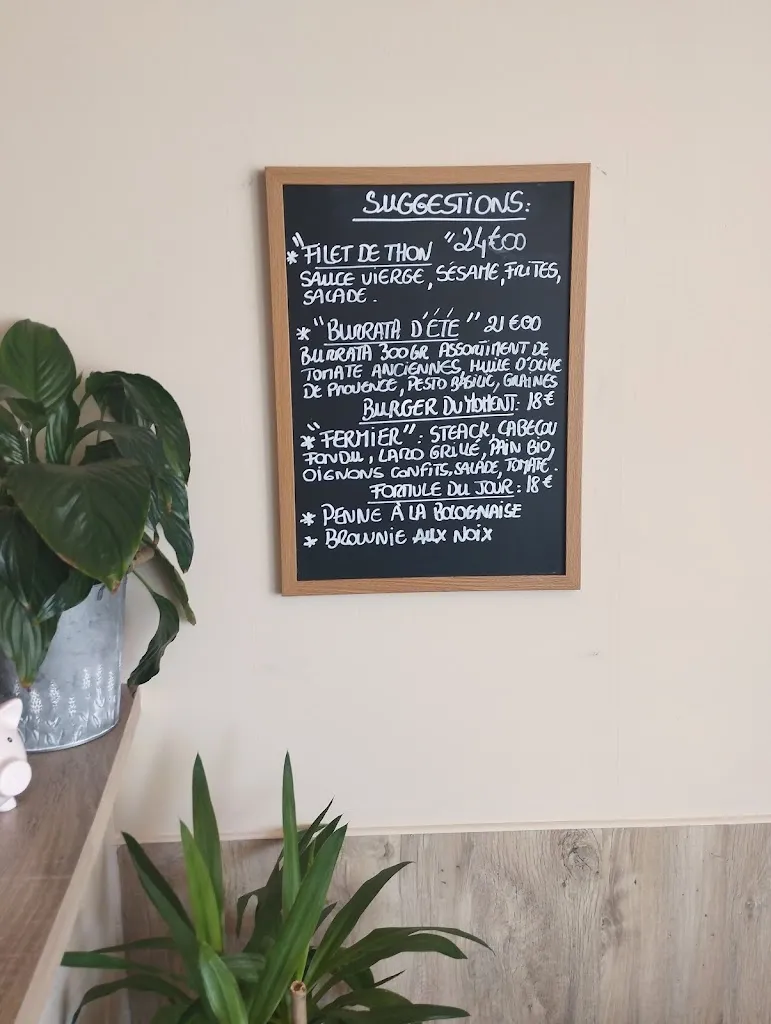 SUGGESTIONS:
* "FILET DE THON" 24€00
SAUCE VIERGE, SÉSAME, FRITES,
SALADE.
* "BURRATA D'ÉTÉ" 21€00
BURRATA 300GR ASSORTIMENT DE
TOMATE ANCIENNES, HUILE D'OLIVE
DE PROVENCE, PESTO BASILIC, GRAINES
BURGER DU MOMENT: 18€
* "FERMIER": STEACK, CABECOU
FONDU, LARD GRILLÉ, PAIN BIO,
OIGNONS CONFITS, SALADE, TOMATE.
FORMULE DU JOUR: 18€
* PENNE À LA BOLOGNAISE
* BROWNIE AUX NOIX